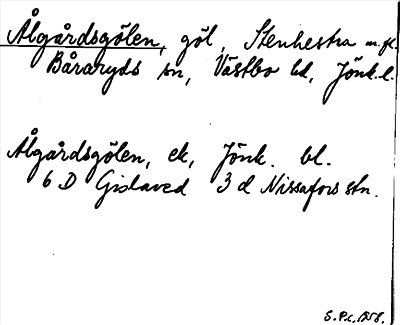 Ålgårdsgölen, göl, Stenhestra m.fl.
Båraryds sn, Västbo hd, Jönk. l.
Ålgårdsgölen, ek, Jönk. bl.
6 D Gislaved 3 d Nissafors stn.
S.P.c. 1958.